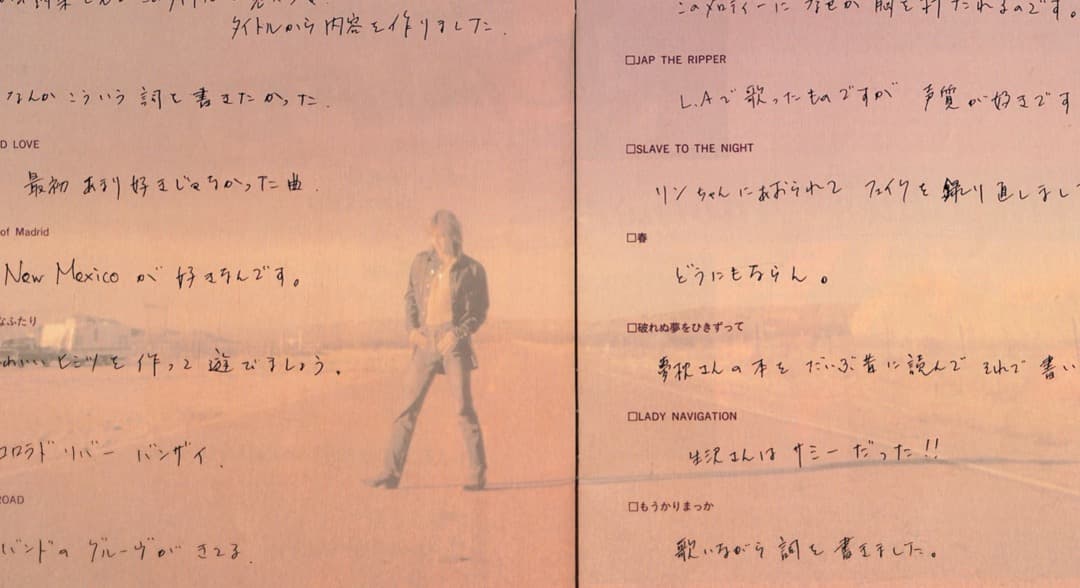 タイトルから内容を作りました.
なんか こういう 詞を 書きたかった.
D LOVE
最初 あまり 好きじゃなかった 曲.
of Madrid
New Mexico が 好きなんです。
なふたり
ヒミツを 作って 遊びましょう.
コロラド リバー バンザイ.
ROAD
バンドの グルーヴが きてる
このメロディーに なぜか 胸を 打たれるのです。
□JAP THE RIPPER
L.Aで 歌ったものですが 声質が好きです
□SLAVE TO THE NIGHT
リンちゃんにあおられて フェイクを 録り直しまし
□春
どうにもならん。
□破れぬ夢をひきずって
夢枕さんの本を だいぶ昔に読んで それで 書い
□LADY NAVIGATION
生沢さんは サミーだった!!
□もうかりまっか
歌いながら 詞を 書きました。